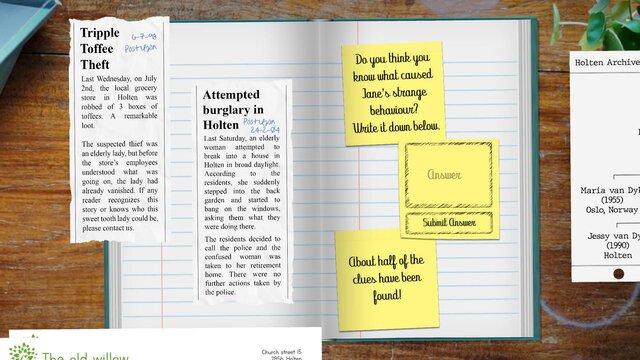 Tripple
Toffee
Theft
6-7-98
Postiljon
Last Wednesday, on July
2nd, the local grocery
store in Holten was
robbed of 3 boxes of
toffees. A remarkable
loot.
The suspected thief was
an elderly lady, but before
the store's employees
understood what was
going on, the lady had
already vanished. If any
reader recognizes this
story or knows who this
sweet tooth lady could be,
please contact us.
Attempted
burglary in
Holten
Postiljon
24-2-04
Last Saturday, an elderly
woman attempted to
break into a house in
Holten in broad daylight.
According to the
residents, she suddenly
stepped into the back
garden and started to
bang on the windows,
asking them what they
were doing there.
The residents decided to
call the police and the
confused woman was
taken to her retirement
home. There were no
further actions taken by
the police.
Do you think you
know what caused
Jane's strange
behaviour?
Write it down below.
Answer
Submit Answer
About half of the
clues have been
found!
Holten Archive
Maria van Dy
(1955)
Oslo, Norway
Jessy van Dy
(1990)
Holten
The old willow
Church street 15
7856 Holten